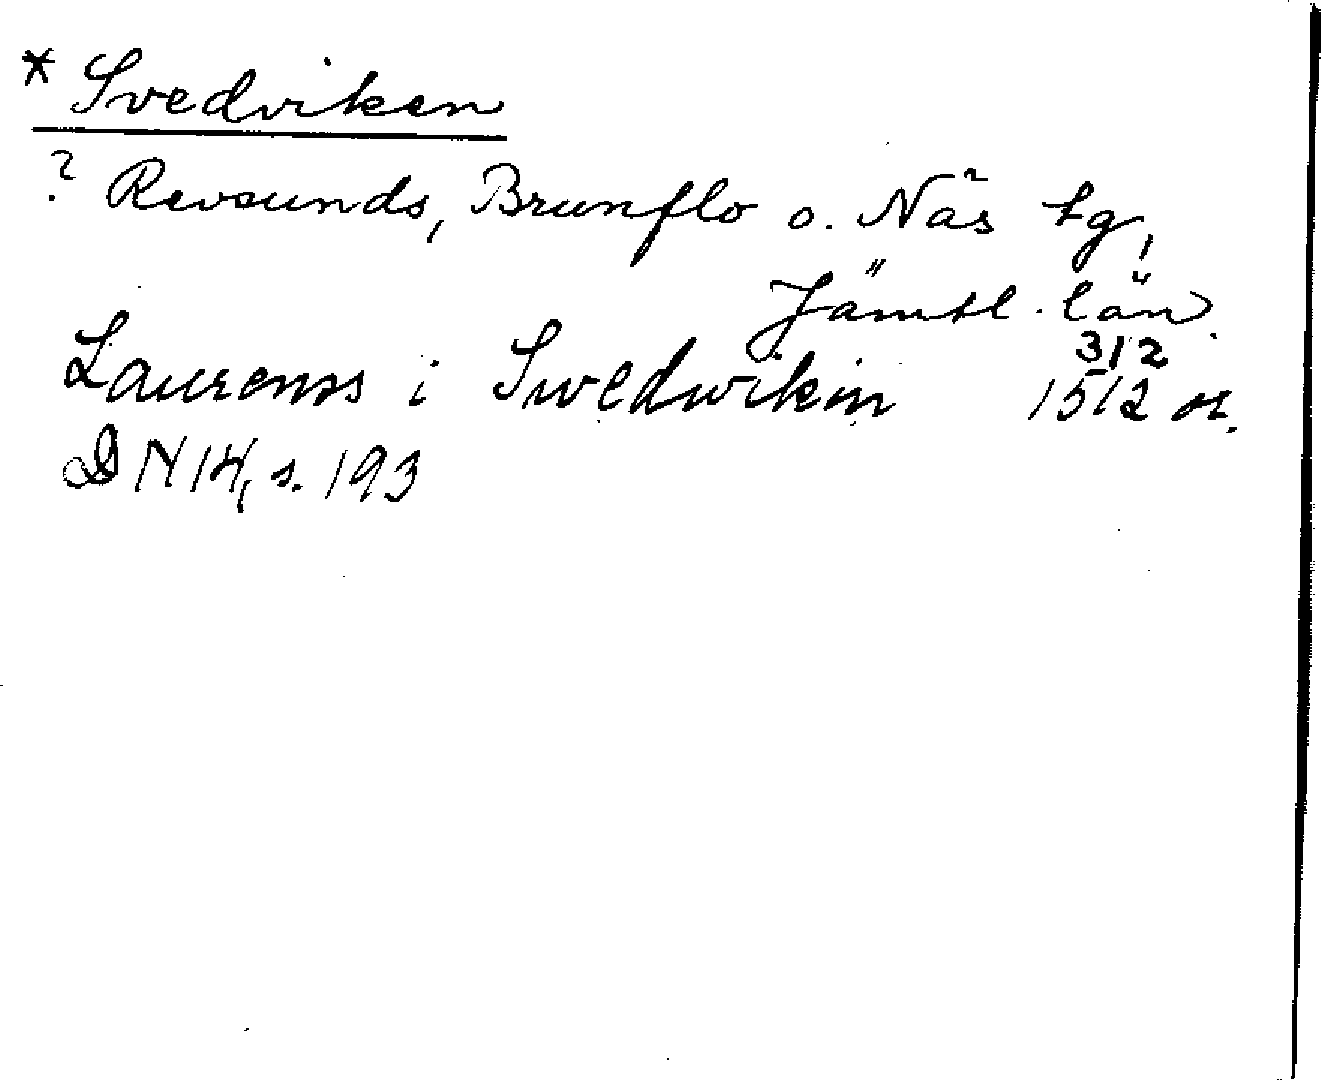 * Svedviken
? Revsunds, Brunflo o. Näs tg,
Jämtl. län.
Laurenss i Swedwikin 3/2 1512 or.
DN 14, s. 193